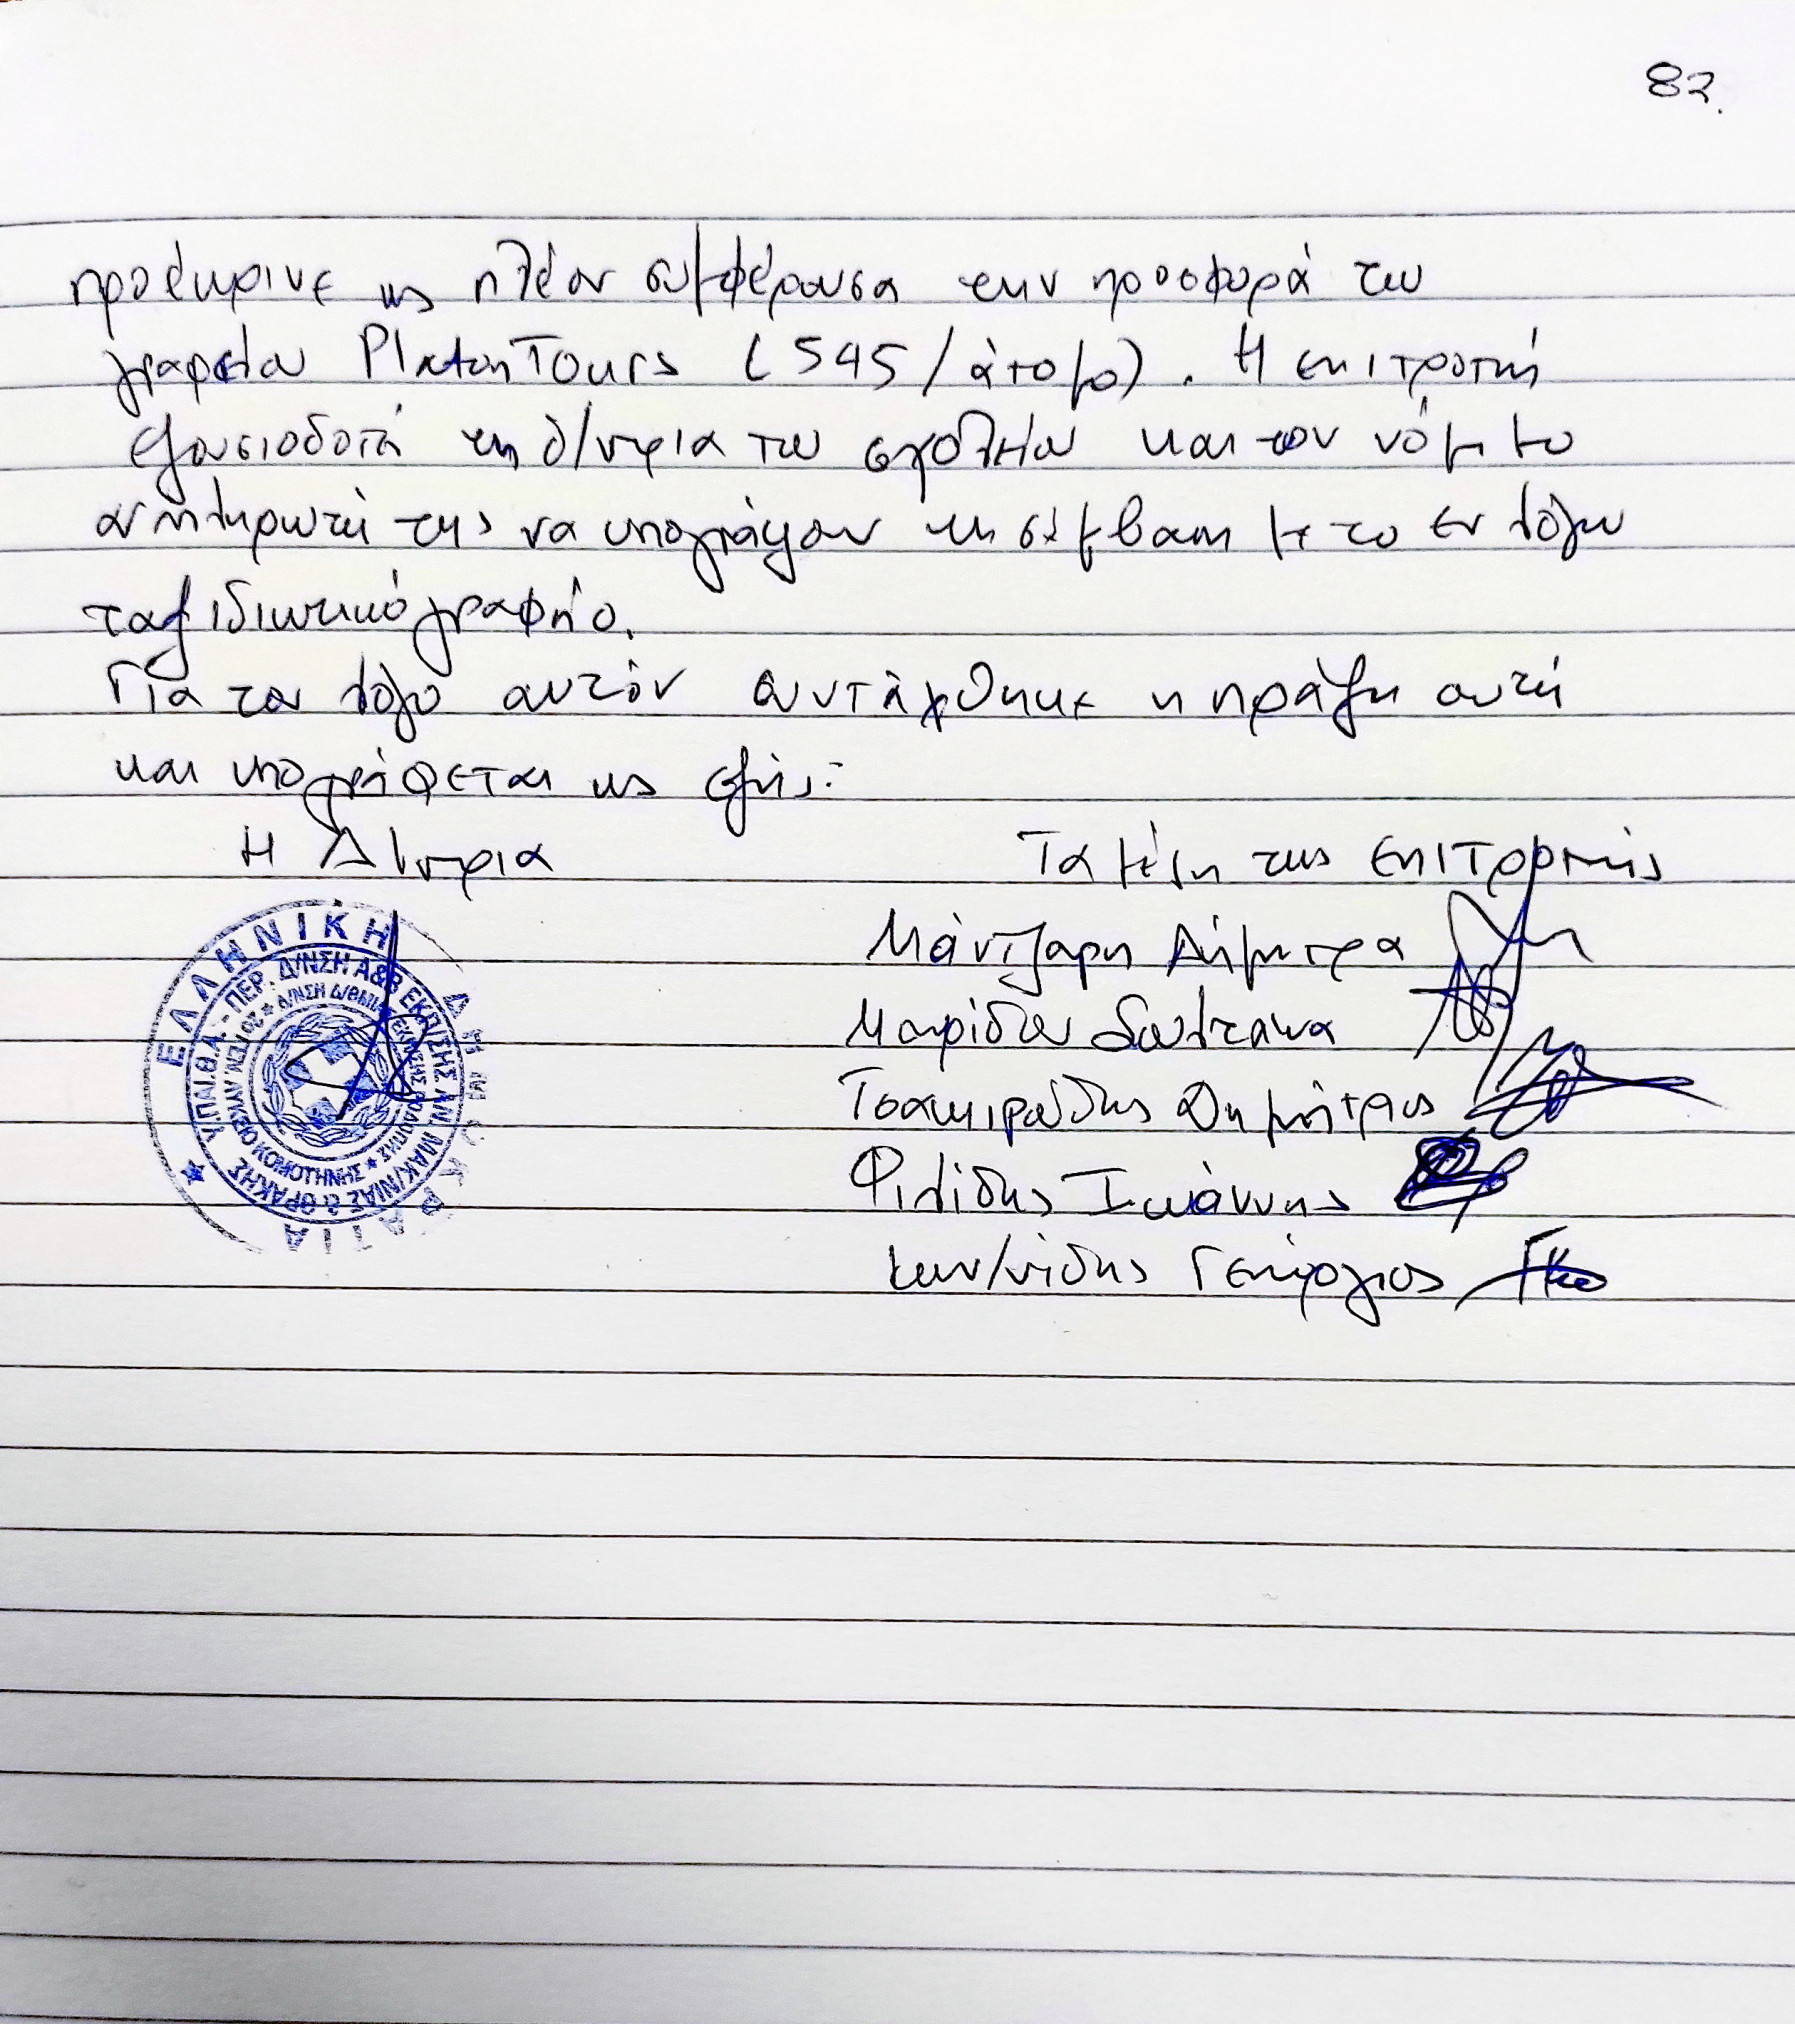 82.
προέκρινε ως πλέον συμφέρουσα την προσφορά του
γραφείου PlatonTours (545/άτομο). Η επιτροπή
εξουσιοδοτεί τη δ/ντρια του σχολείου και τον νόμιμο
αναπληρωτή της να υπογράψουν τη σύμβαση με το εν λόγω
ταξιδιωτικό γραφείο.
Για τον λόγο αυτόν συντάχθηκε η πράξη αυτή
και υπογράφεται ως εξής:
Η Δ/ντρια
Τα μέλη της επιτροπής
Μάντζαρη Δήμητρα
Μαυρίδου Σωτηρία
Τσακιρούδης Δημήτριος
Φιλίδης Ιωάννης
Κων/νίδης Γεώργιος
ΕΛΛΗΝΙΚΗ ΔΗΜΟΚΡΑΤΙΑ
Υ.ΠΑΙ.Θ.Α. - ΠΕΡ. Δ/ΝΣΗ Α&Β ΕΚΠ/ΣΗΣ ΑΝ. ΜΑΚ/ΝΙΑΣ & ΘΡΑΚΗΣ
Δ/ΝΣΗ Δ/ΘΜΙΑΣ ΕΚΠ/ΣΗΣ ΡΟΔΟΠΗΣ
2ο ΓΕΝ. ΛΥΚΕΙΟ ΚΟΜΟΤΗΝΗΣ